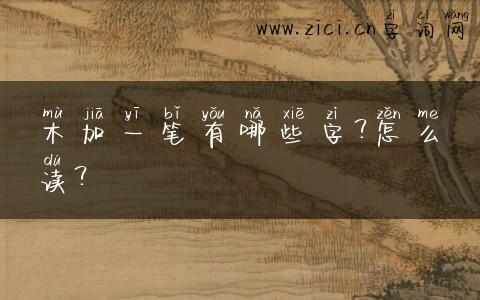 zì cí wǎng
www.zici.cn字词网
mù jiā yī bǐ yǒu nǎ xiē zì zěn me
木加一笔有哪些字?怎么
dú
读?